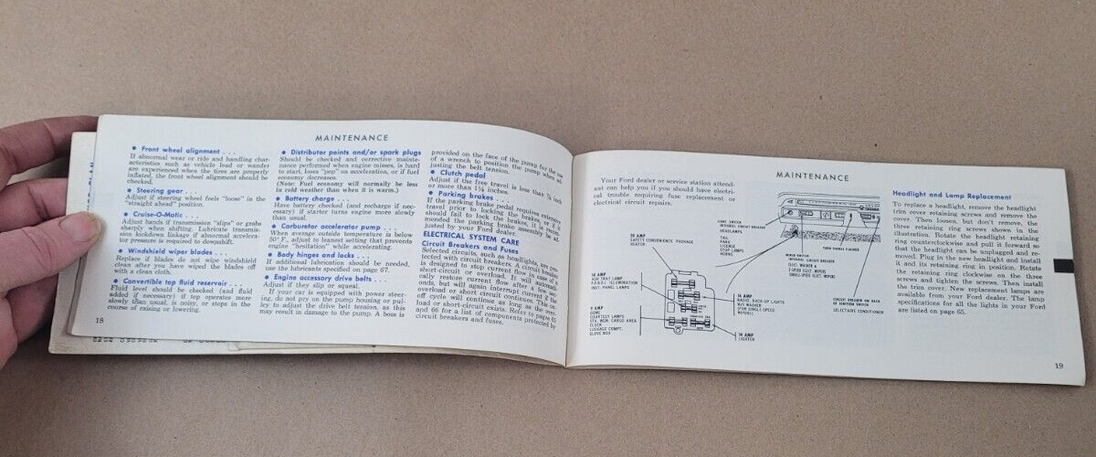 MAINTENANCE
• Front wheel alignment . . .
If abnormal wear or ride and handling char-
acteristics such as vehicle load or wander
are experienced when the tires are properly
inflated, the front wheel alignment should be
checked.
• Steering gear . . .
Adjust if steering wheel feels "loose" in the
"straight ahead" position.
• Cruise-O-Matic . . .
Adjust bands if transmission "slips" or grabs
sharply when shifting. Lubricate transmis-
sion kickdown linkage if abnormal accelera-
tor pressure is required to downshift.
• Windshield wiper blades . . .
Replace if blades do not wipe windshield
clean after you have wiped the blades off
with a clean cloth.
• Convertible top fluid reservoir . . .
Fluid level should be checked (and fluid
added if necessary) if top operates more
slowly than usual, is noisy, or stops in the
course of raising or lowering.
18
• Distributor points and/or spark plugs
Should be checked and corrective mainte-
nance performed when engine misses, is hard
to start, loses "pep" on acceleration, or if fuel
economy decreases.
(Note: Fuel economy will normally be less
in cold weather than when it is warm.)
• Battery charge . . .
Have battery checked (and recharged if nec-
essary) if starter turns engine more slowly
than usual.
• Carburetor accelerator pump . . .
When average outside temperature is below
50°F., adjust to leanest setting that prevents
engine "hesitation" while accelerating.
• Body hinges and locks . . .
If additional lubrication should be needed,
use the lubricants specified on page 67.
• Engine accessory drive belts . . .
Adjust if they slip or squeal.
If your car is equipped with power steer-
ing, do not pry on the pump housing or pul-
ley to adjust the drive belt tension, as this
may result in damage to the pump. A boss is
provided on the face of the pump for the use
of a wrench to position the pump when ad-
justing the belt tension.
• Clutch pedal
Adjust if the free travel is less than ⅞ inch
or more than 1⅛ inches.
• Parking brakes . . .
If the parking brake pedal requires extensive
travel prior to locking the brakes, or if it
should fail to lock the brakes, it is recom-
mended the parking brake assembly be ad-
justed by your Ford dealer.
ELECTRICAL SYSTEM CARE
Circuit Breakers and Fuses
Selected circuits, such as headlights, are pro-
tected with circuit breakers. A circuit breaker
is designed to stop current flow in case of a
short-circuit or overload. It will automati-
cally restore current flow after a few sec-
onds, but will again interrupt current if the
overload or short circuit continues. This on-
off cycle will continue as long as the over-
load or short-circuit exists. Refer to pages 65
and 66 for a list of components protected by
circuit breakers and fuses.
MAINTENANCE
Your Ford dealer or service station attend-
ant can help you if you should have electri-
cal trouble requiring fuse replacement or
electrical circuit repairs.
LIGHT SWITCH
INTEGRAL CIRCUIT BREAKERS
HEADLIGHTS
TAIL
PARK
LICENSE
STOP LAMPS
HORNS
20 AMP
SAFETY CONVENIENCE PACKAGE
HEATER
TURN SIGNALS FLASHER
WIPER SWITCH
INTEGRAL CIRCUIT BREAKER
CIRCUIT BREAKER ON BACK
OF IGNITION SWITCH
SELECTAIRE CONDITIONER
14 AMP
RADIO, BACK-UP LIGHTS
14 AMP
LIGHTER
INST. PANEL LAMPS
DOME
COURTESY LAMPS
STA. WGN. CARGO AREA
CLOCK
LUGGAGE COMPT.
GLOVE BOX
Headlight and Lamp Replacement
To replace a headlight, remove the headlight
trim cover retaining screws and remove the
cover. Then loosen, but don't remove, the
three retaining ring screws shown in the
illustration. Rotate the headlight retaining
ring counterclockwise and pull it forward so
that the headlight can be unplugged and re-
moved. Plug in the new headlight and install
it and its retaining ring in position. Rotate
the retaining ring clockwise on the three
screws and tighten the screws. Then install
the trim cover. New replacement lamps are
available from your Ford dealer. The lamp
specifications for all the lights in your Ford
are listed on page 65.
19